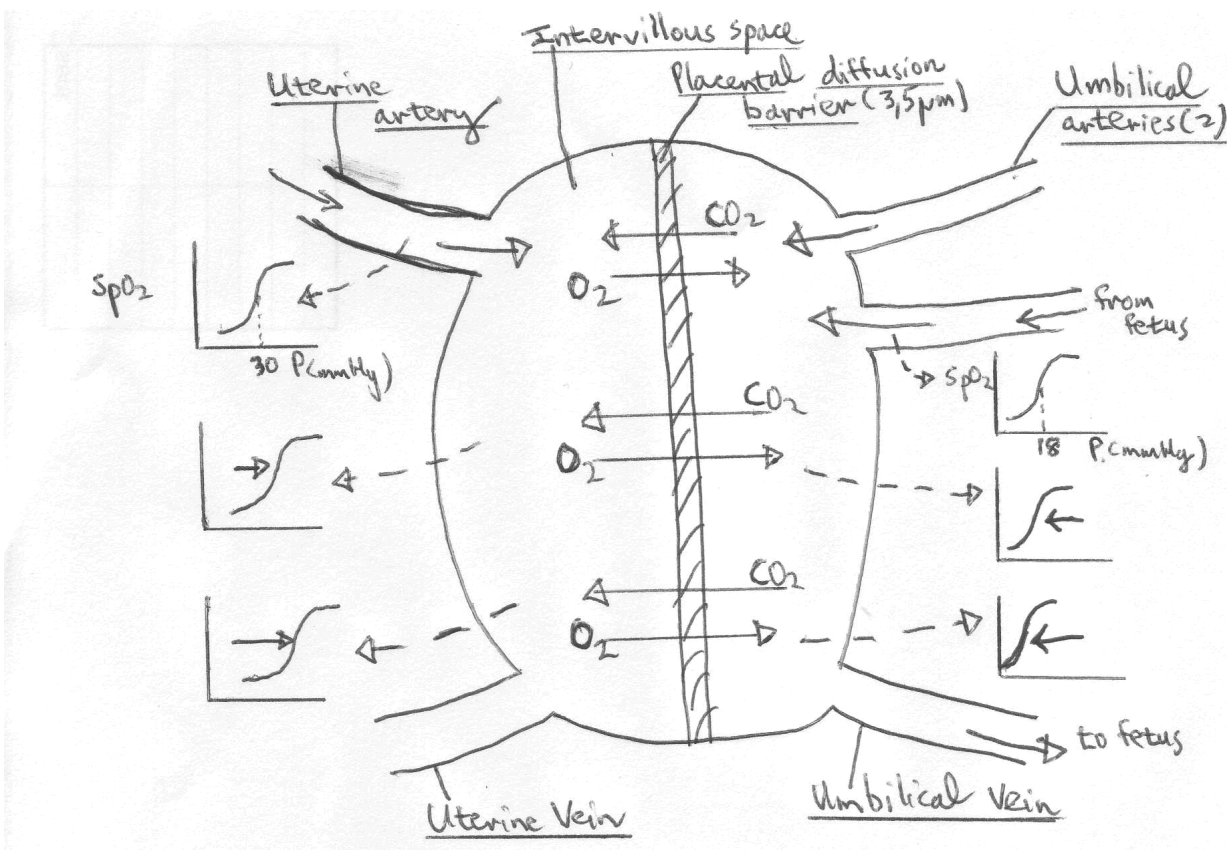 Intervillous space
Placental diffusion
barrier (3,5μm)
Uterine
artery
Umbilical
arteries (2)
CO2
O2
SpO2
30 P(mmHg)
from
fetus
SpO2
18 P(mmHg)
CO2
O2
CO2
O2
to fetus
Uterine Vein
Umbilical Vein